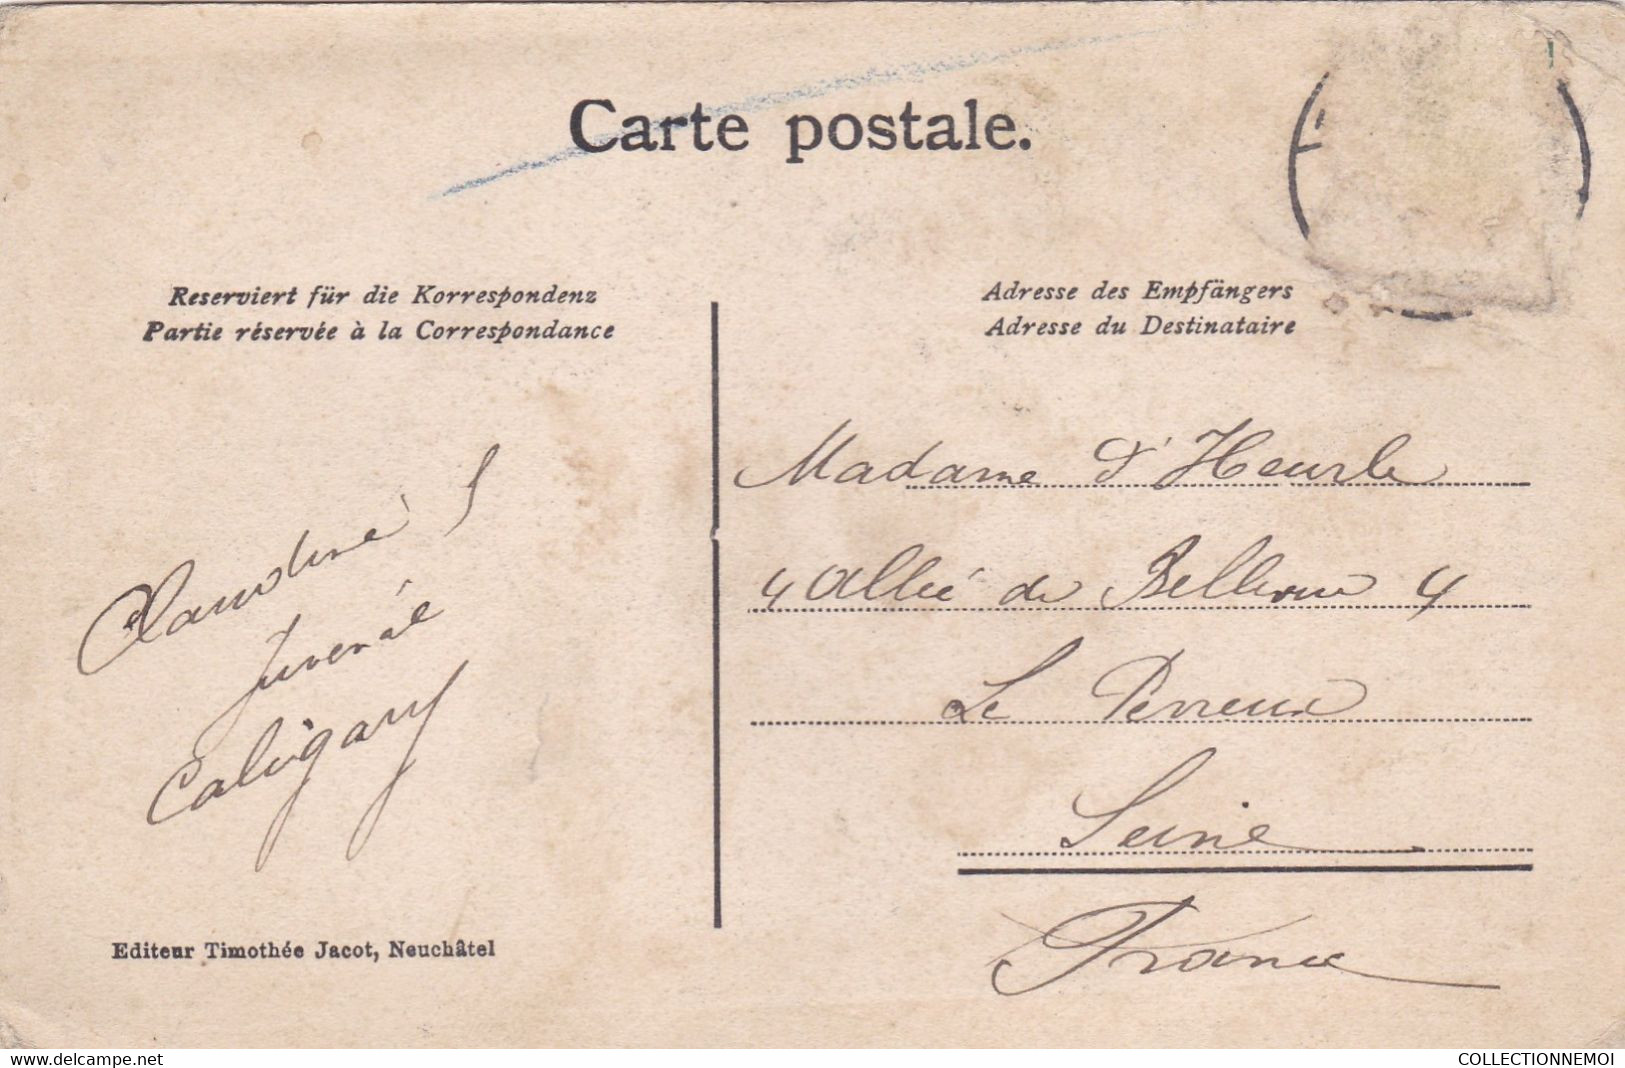 Carte postale.
Reserviert für die Korrespondenz
Partie réservée à la Correspondance
Adresse des Empfängers
Adresse du Destinataire
Madame d'Heurle
4 Allée de Bellevue 4
Le Perreux
Seine
France
Editeur Timothée Jacot, Neuchâtel
www.delcampe.net
COLLECTIONNEMOI